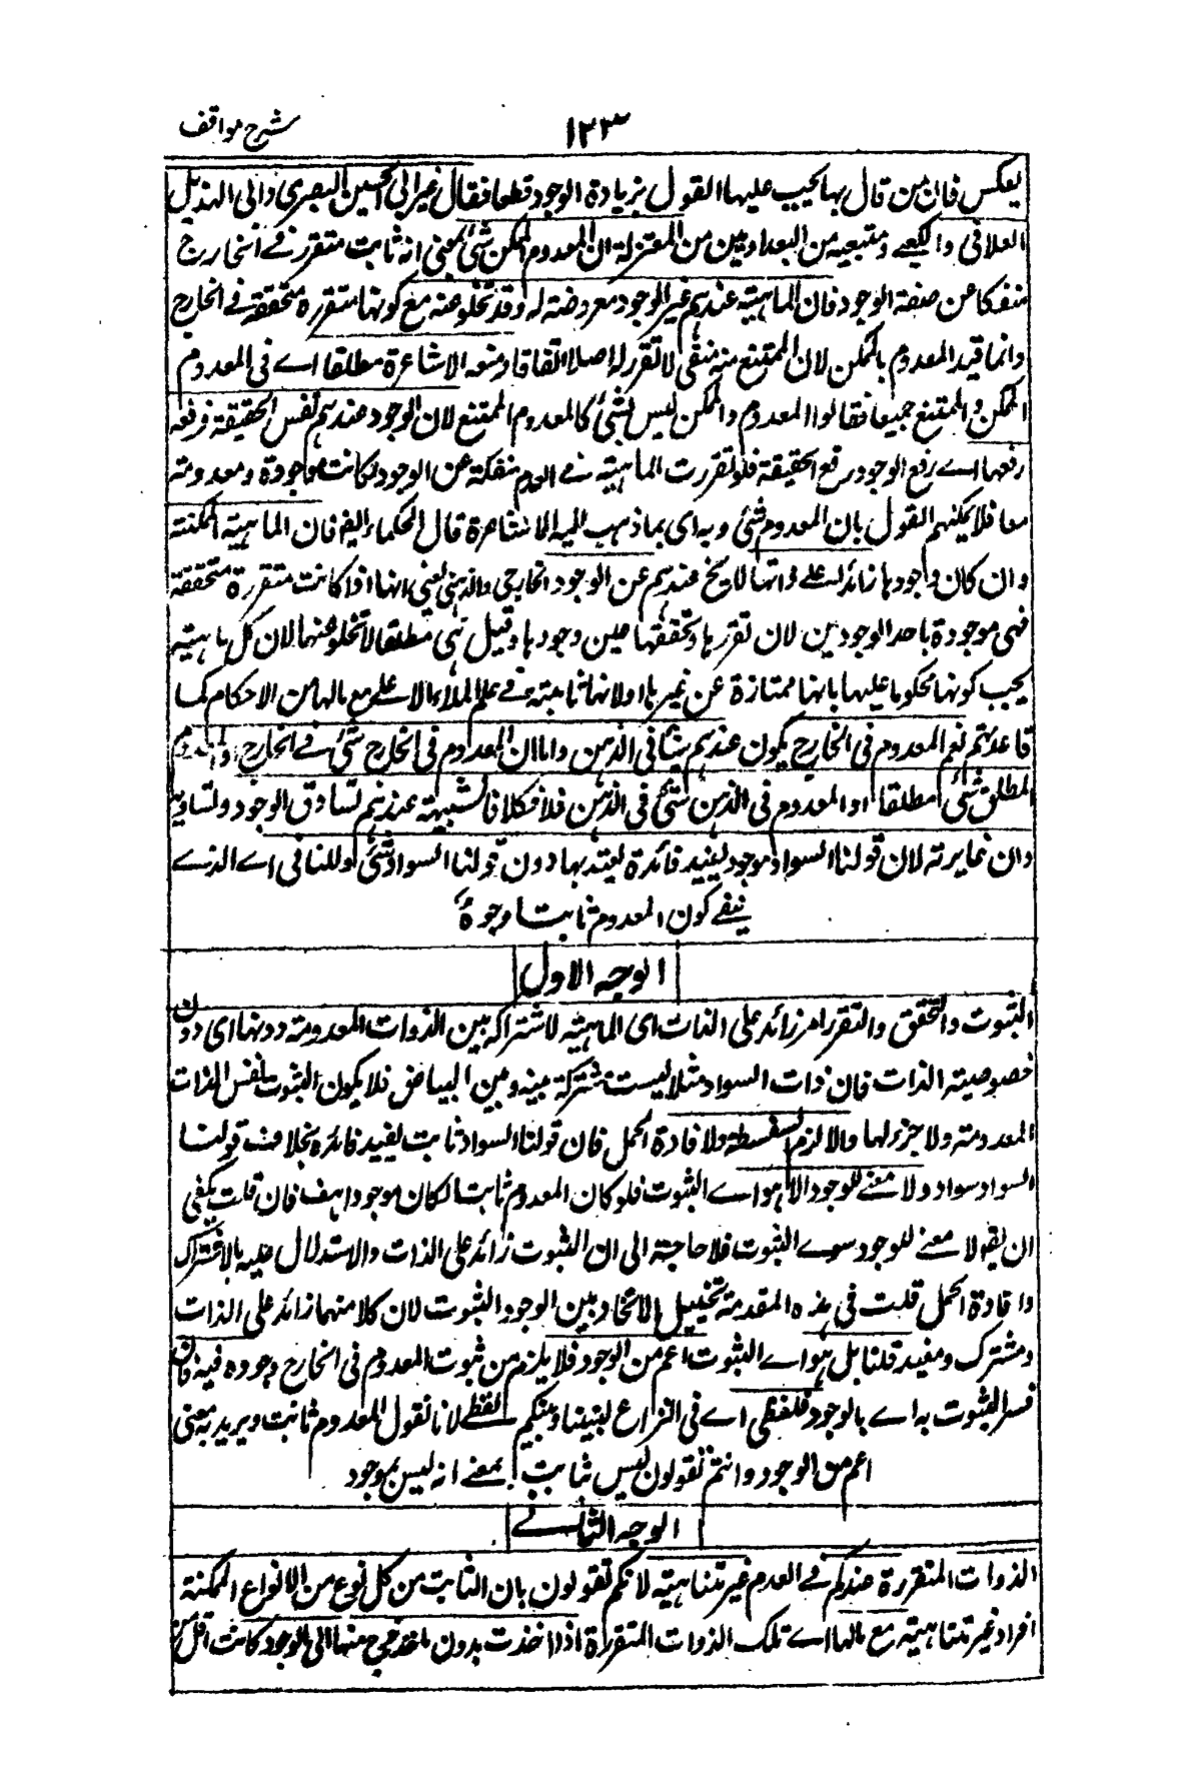 شرح مواقف
١٢٣
يعكس فان من قال بها يجب عليها القول بزيادة الوجود قطعا فقال غير ابى الحسين البصرى وابى الهذيل
العلاف والكعبے ومتبعيه من البغداديين من المعتزلة ان المعدوم الممكن شئ بمعنى انه ثابت متقرر فے الخارج
منفكا عن صفة الوجود فان الماهية عندهم غير الوجود معروضة له وقد تخلو عنه مع كونها متقررة متحققة فے الخارج
وانما قيد المعدوم بالممكن لان الممتنع منه منفى لا تقرر له اصلا اتفاقا ومنعه الاشاعرة مطلقا اے فى المعدوم
الممكن والممتنع جميعا فقالوا المعدوم الممكن ليس بشئ كالمعدوم الممتنع لان الوجود عندهم نفس الحقيقة فرفعه
رفعها اے رفع الوجود رفع الحقيقة فلو تقررت الماهية فے العدم منفكة عن الوجود لكانت موجودة ومعدومة
معا فلا يمكنهم القول بان المعدوم شئ وبه اى بما ذهب اليه الاشاعرة قال الحكماء ايضا فان الماهية الممكنة
وان كان وجودها زائدا على ذاتها لا تخلو عندهم عن الوجود الخارجى والذهنى يعنى انها اذا كانت متقررة متحققة
فهى موجودة باحد الوجودين لان تقررها وتحققها عين وجودها وقيل هى مطلقا لا تخلو عنها لان كل ماهية
يجب كونها محكوما عليها بانها ممتازة عن غيرها او لانها ثابتة فے علم الملاء الاعلى مع مالها من الاحكام كما
قاعدتهم نعم المعدوم فى الخارج يكون عندهم شيئا فى الذهن واما ان المعدوم فى الخارج شئ فے الخارج او المعدوم
المطلق شئ مطلقا او المعدوم فى الذهن شئ فى الذهن فلا فكلا فالشيئية عندهم تساوق الوجود وتساويه
وان غايرته لان قولنا السواد موجود يفيد فائدة يعتد بها دون قولنا السواد شئ وللنافى اے الذے
ينفے كون المعدوم ثابتا وجوه
الوجه الاول
الثبوت والتحقق والتقرر امر زائد على الذات اى الماهية لاشتراكه بين الذوات المعدومة دونها اى دون
خصوصية الذات فان ذات السواد مثلا ليست مشتركة بينه وبين البياض فلا يكون الثبوت نفس الذات
المعدومة ولا جزء لها والا لزم السفسطة ولافادة الحمل فان قولنا السواد ثابت يفيد فائدة بخلاف قولنا
السواد سواد ولا معنے للوجود الا هو اے الثبوت فلو كان المعدوم ثابتا لكان موجودا هف فان قلت يكفى
ان يقول لا معنے للوجود سوے الثبوت فلا حاجة الى ان الثبوت زائد على الذات والاستدلال عليه بالاشتراك
وافادة الحمل قلت فى هذه المقدمة تخييل الاتحاد بين الوجود والثبوت لان كلا منهما زائد على الذات
ومشترك ومفيد قلنا بل هو اے الثبوت اعم من الوجود فلا يلزم من ثبوت المعدوم فى الخارج وجوده فيه فان
فسر الثبوت به اے بالوجود فلفظى اے فى النزاع بيننا وبينكم لفظے لانا نقول المعدوم ثابت ويريد به معنى
اعم من الوجود وانتم تقولون ليس ثابت بمعنے انه ليس بموجود
الوجه الثانے
الذوات المتقررة عندكم فے العدم غير متناهية لانكم تقولون بان الثابت من كل نوع من الانواع الممكنة
افراد غير متناهية مع مالها اے تلك الذوات المتقررة اذا اخذت بدون ما خرج منها الى الوجود كانت اقل